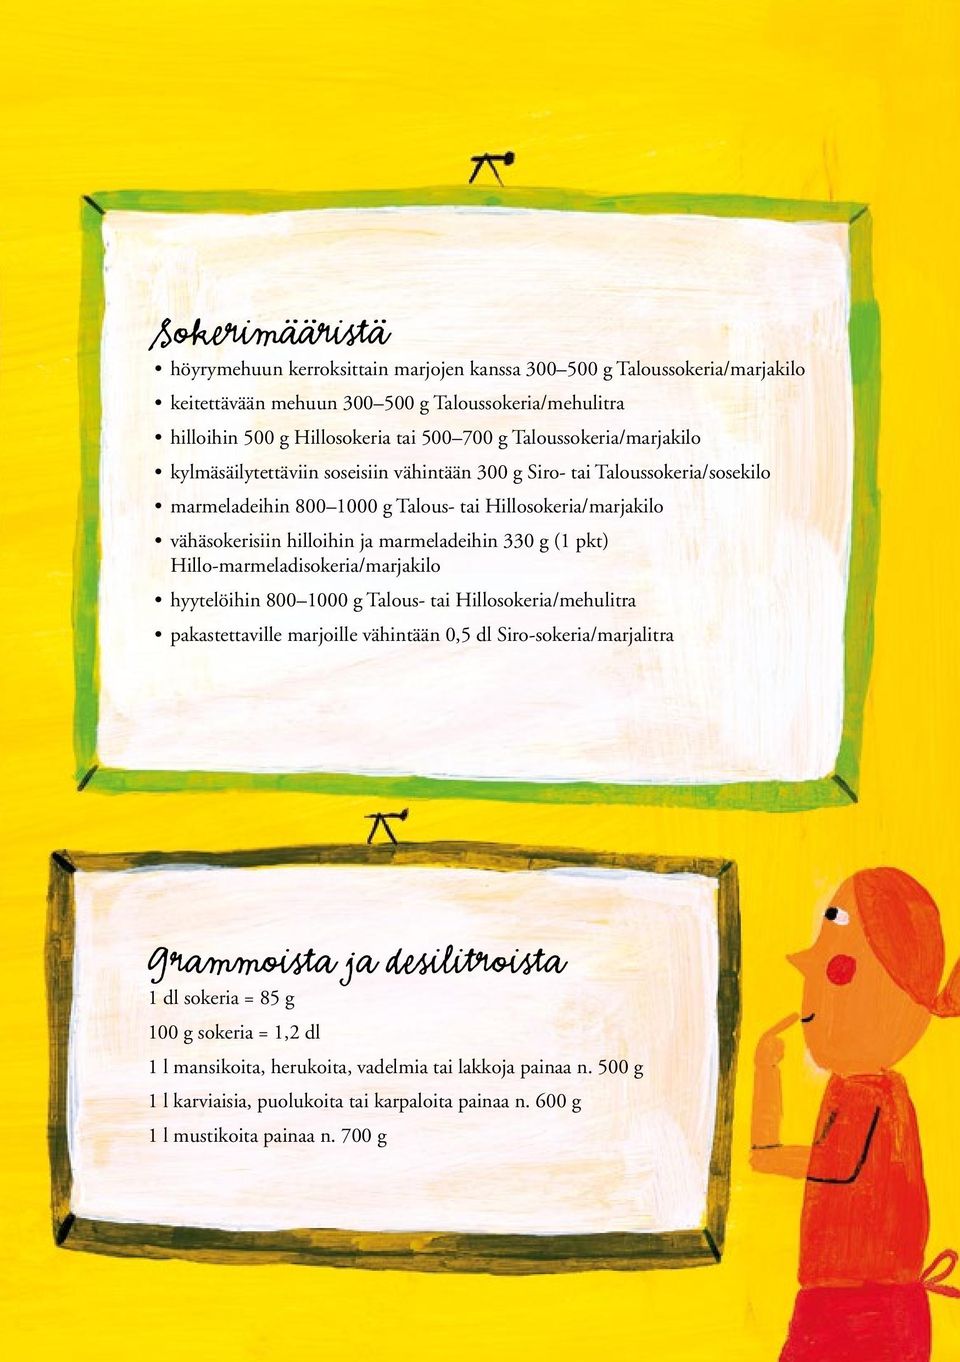 Sokerimääristä
• höyrymehuun kerroksittain marjojen kanssa 300–500 g Taloussokeria/marjakilo
• keitettävään mehuun 300–500 g Taloussokeria/mehulitra
• hilloihin 500 g Hillosokeria tai 500–700 g Taloussokeria/marjakilo
• kylmäsäilytettäviin soseisiin vähintään 300 g Siro- tai Taloussokeria/sosekilo
• marmeladeihin 800–1000 g Talous- tai Hillosokeria/marjakilo
• vähäsokerisiin hilloihin ja marmeladeihin 330 g (1 pkt)
Hillo-marmeladisokeria/marjakilo
• hyytelöihin 800–1000 g Talous- tai Hillosokeria/mehulitra
• pakastettaville marjoille vähintään 0,5 dl Siro-sokeria/marjalitra
Grammoista ja desilitroista
1 dl sokeria = 85 g
100 g sokeria = 1,2 dl
1 l mansikoita, herukoita, vadelmia tai lakkoja painaa n. 500 g
1 l karviaisia, puolukoita tai karpaloita painaa n. 600 g
1 l mustikoita painaa n. 700 g